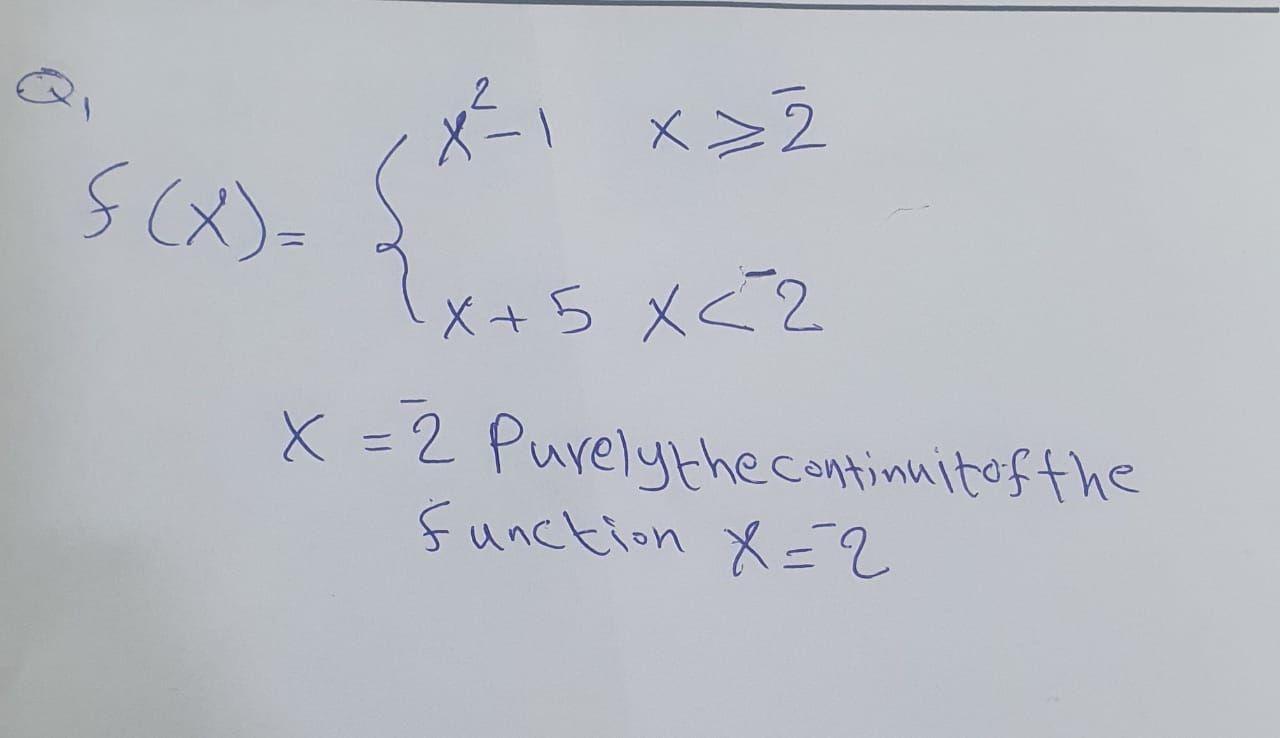 Q1
x²-1 x⩾-2
f(x)= {
x+5 x<-2
x = -2 Purely the continuit of the
function x=-2